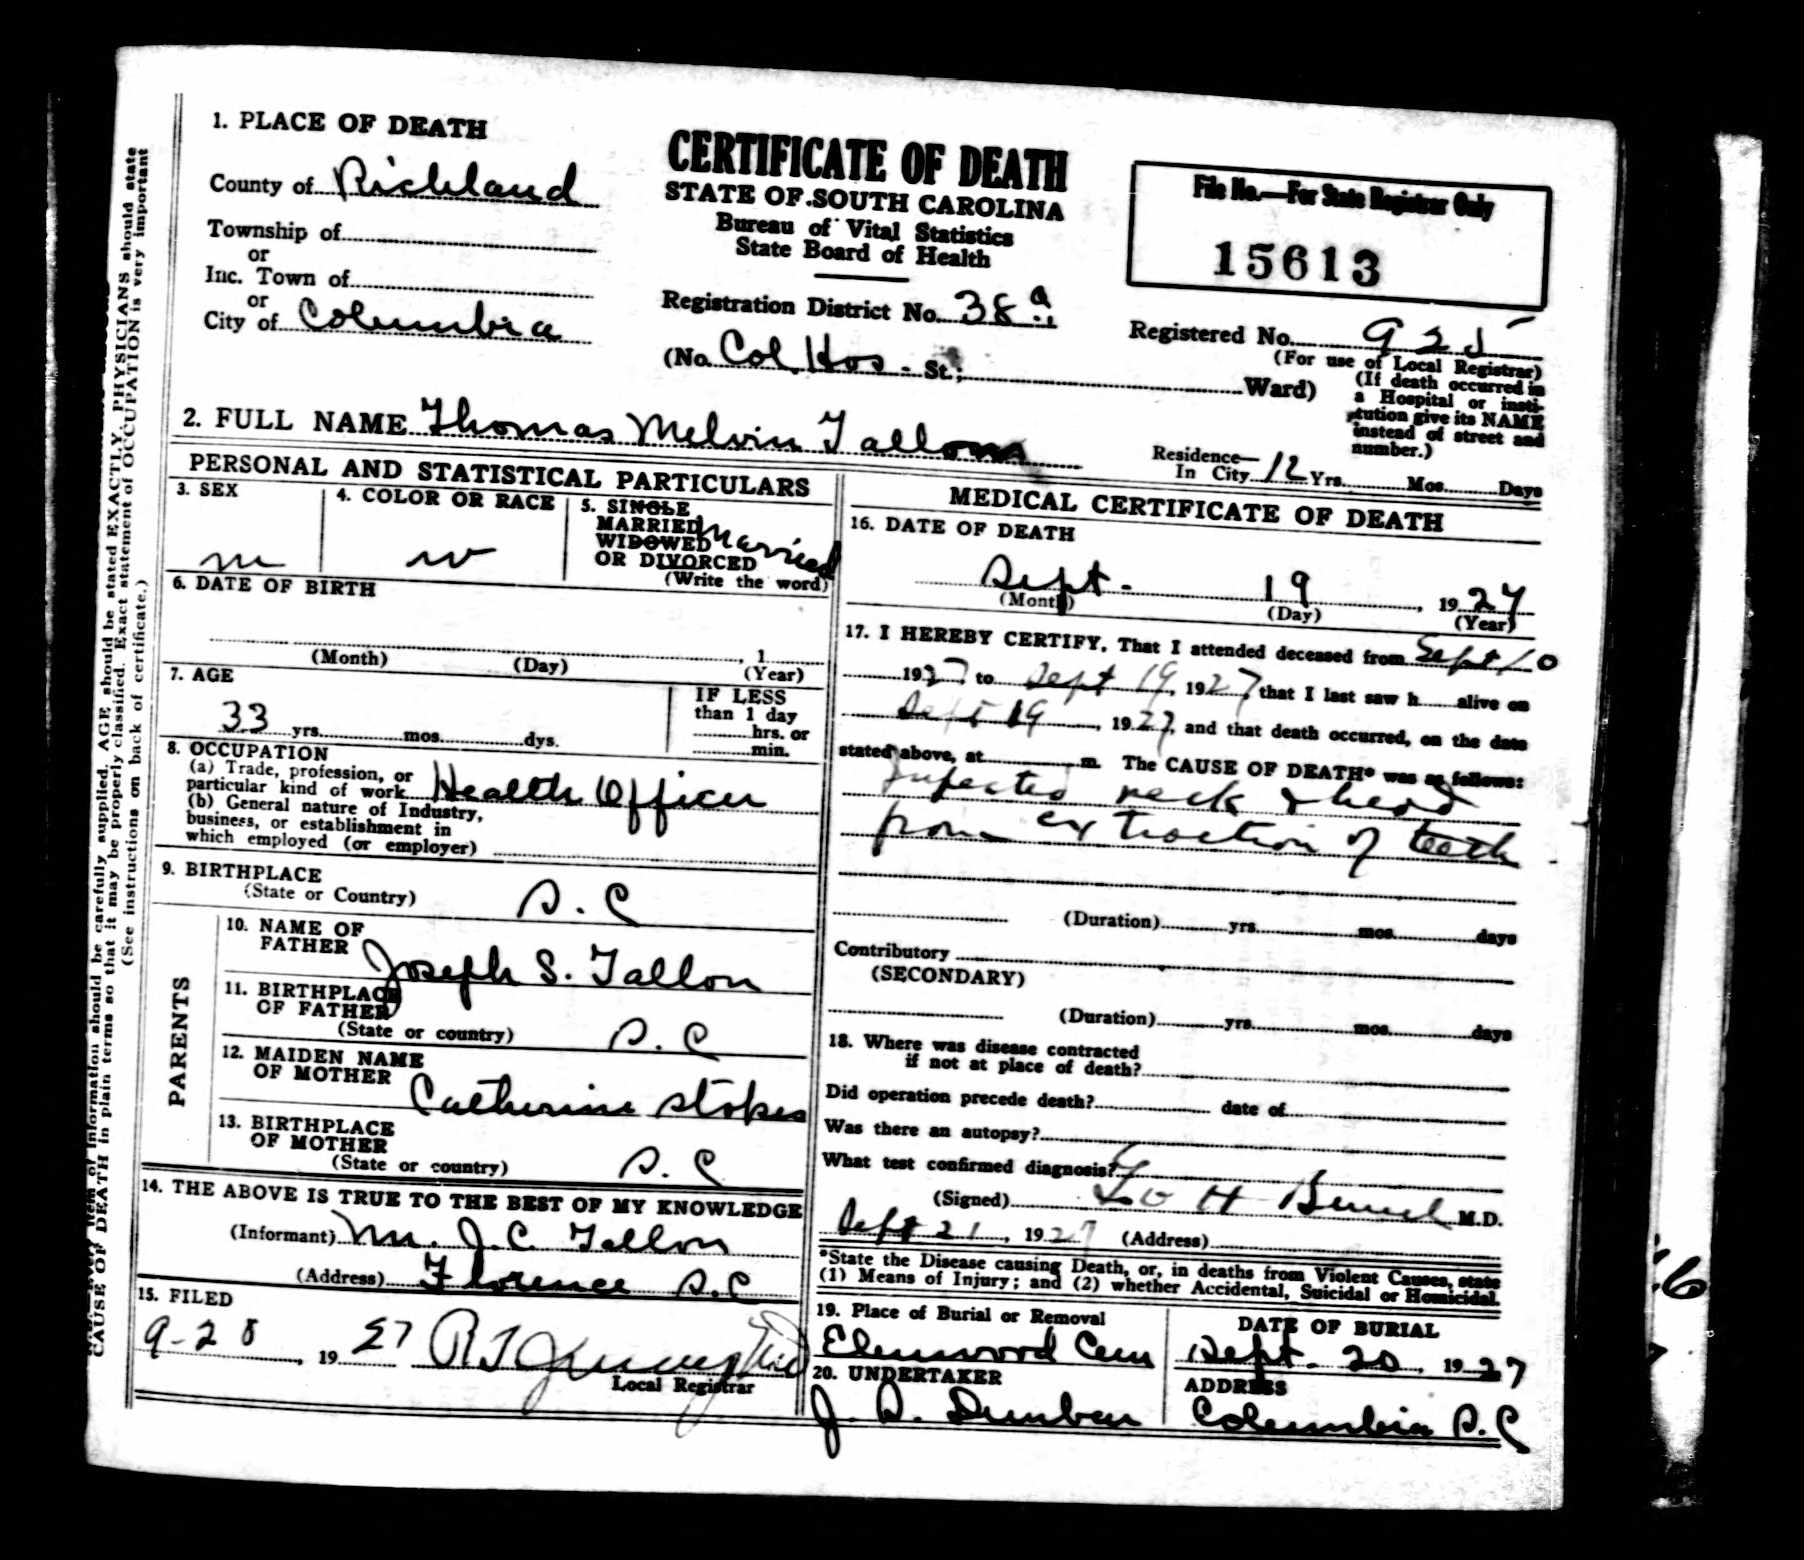 1. PLACE OF DEATH
County of Richland
Township of
or
Inc. Town of
or
City of Columbia
CERTIFICATE OF DEATH
STATE OF SOUTH CAROLINA
Bureau of Vital Statistics
State Board of Health
Registration District No. 38 a
(No. Col. Hos. St.; Ward)
File No.—For State Registrar Only
15613
Registered No. 925
(For use of Local Registrar)
(If death occurred in
a Hospital or insti-
tution give its NAME
instead of street and
number.)
2. FULL NAME Thomas Melvin Tallon
Residence—
In City 12 Yrs. Mos. Days
PERSONAL AND STATISTICAL PARTICULARS
3. SEX
m
4. COLOR OR RACE
w
5. SINGLE
MARRIED
WIDOWED
OR DIVORCED
(Write the word)
Married
6. DATE OF BIRTH
, 1
(Month) (Day) (Year)
7. AGE
33 yrs. mos. dys.
IF LESS
than 1 day
hrs. or
min.
8. OCCUPATION
(a) Trade, profession, or
particular kind of work Health Officer
(b) General nature of Industry,
business, or establishment in
which employed (or employer)
9. BIRTHPLACE
(State or Country) S. C
PARENTS
10. NAME OF
FATHER Joseph S. Tallon
11. BIRTHPLACE
OF FATHER
(State or country) S. C
12. MAIDEN NAME
OF MOTHER Catherine Stokes
13. BIRTHPLACE
OF MOTHER
(State or country) S. C
14. THE ABOVE IS TRUE TO THE BEST OF MY KNOWLEDGE
(Informant) Mr. J. C. Tallon
(Address) Florence S. C
15. FILED
9-28, 1927
Local Registrar
MEDICAL CERTIFICATE OF DEATH
16. DATE OF DEATH
Sept. 19, 1927
(Month) (Day) (Year)
17. I HEREBY CERTIFY, That I attended deceased from Sept 10
1927 to Sept 19, 1927 that I last saw h alive on
Sept 19, 1927, and that death occurred, on the date
stated above, at m. The CAUSE OF DEATH* was as follows:
Infected neck & head
from extraction of teeth
(Duration) yrs. mos. days
Contributory
(SECONDARY)
(Duration) yrs. mos. days
18. Where was disease contracted
if not at place of death?
Did operation precede death? date of
Was there an autopsy?
What test confirmed diagnosis?
(Signed) H Bunch M.D.
Sept 21, 1927 (Address)
*State the Disease causing Death, or, in deaths from Violent Causes, state
(1) Means of Injury; and (2) whether Accidental, Suicidal or Homicidal.
19. Place of Burial or Removal
Elmwood Cem
DATE OF BURIAL
Sept. 20, 1927
20. UNDERTAKER
J. S. Dunbar
ADDRESS
Columbia S. C
item of information should be carefully supplied. AGE should be stated EXACTLY. PHYSICIANS should state
CAUSE OF DEATH in plain terms so that it may be properly classified. Exact statement of OCCUPATION is very important
(See instructions on back of certificate.)